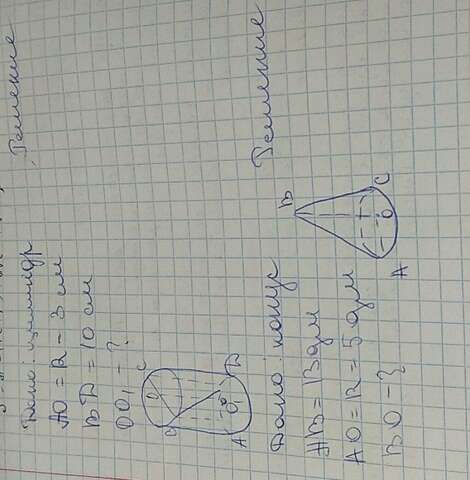 Решение
Дано: цилиндр
AO = R = 3 см
BD = 10 см
OO₁ - ?
B
O
C
A
O₁
D
Решение
Дано: конус
AB = 13 дм
AO = R = 5 дм
BO - ?
B
A
O
C